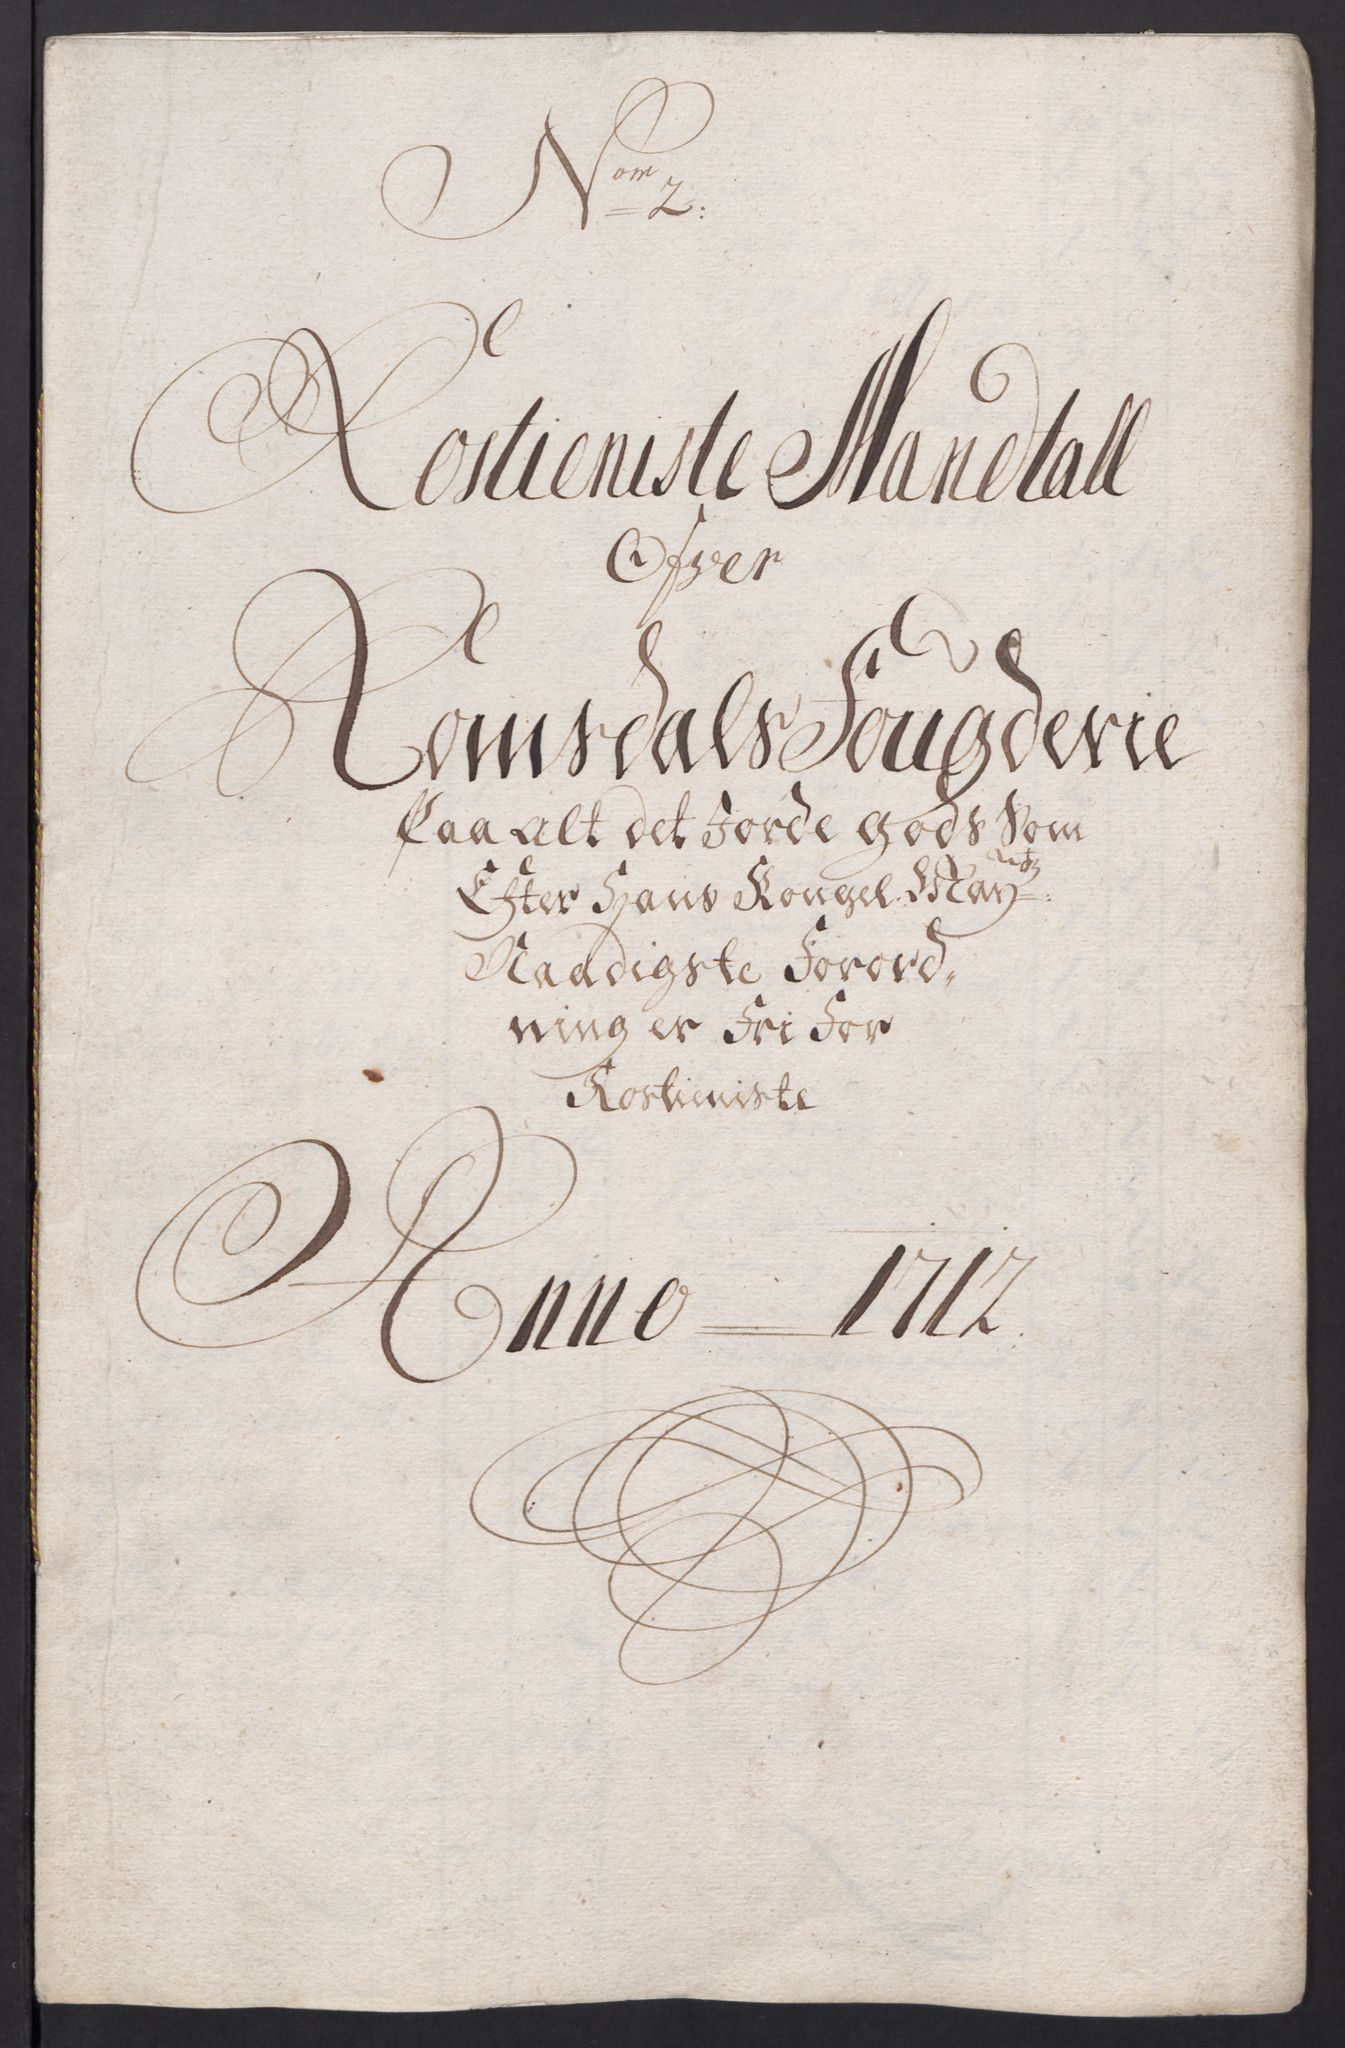 Nom 2:
Rostieniste Mandtall
Ofver
Romsdals Fougderie
Paa alt det Jorde gods Som
Efter Hans Kongel. May:
Naadigste Forord,
ning er Fri For
Rostieniste
Anno 1712.